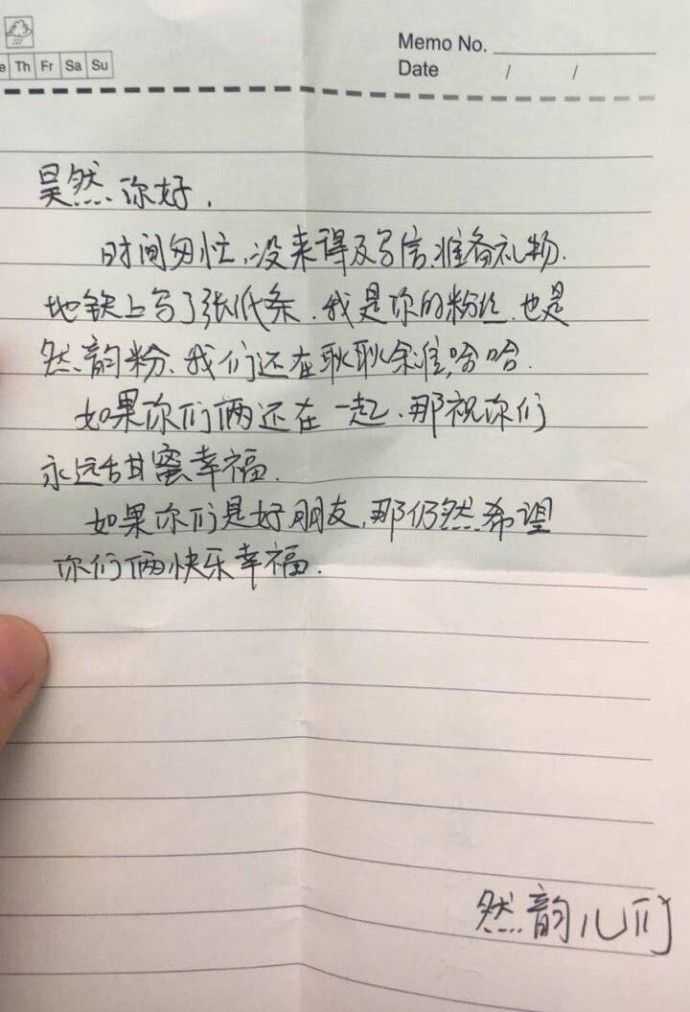 Memo No.
e Th Fr Sa Su
Date / /
昊然你好,
时间匆忙,没来得及写信、准备礼物.
地铁上写了张纸条.我是你的粉丝,也是
然韵粉、我们还在耿耿余淮,哈哈.
如果你们俩还在一起、那祝你们
永远甜蜜幸福.
如果你们是好朋友,那仍然希望
你们俩快乐幸福.
然韵儿们